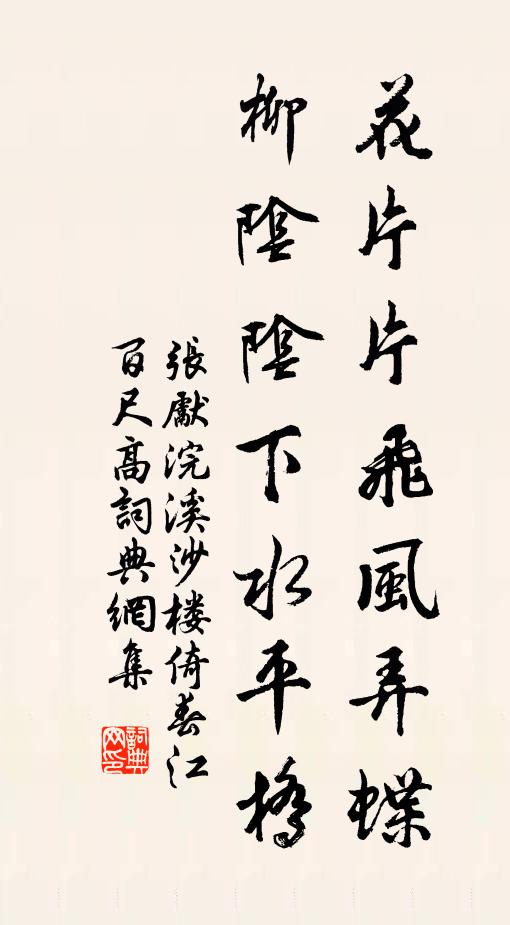 花片片飛風弄蝶
柳陰陰下水平橋
張獻浣溪沙楼倚春江
百尺高詞典網集
詞典网印